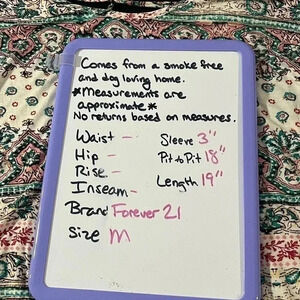 Comes from a smoke free
and dog loving home.
*Measurements are
approximate*
No returns based on measures.
Waist -
Hip -
Rise -
Inseam -
Sleeve 3"
Pit to Pit 18"
Length 19"
Brand Forever 21
Size M